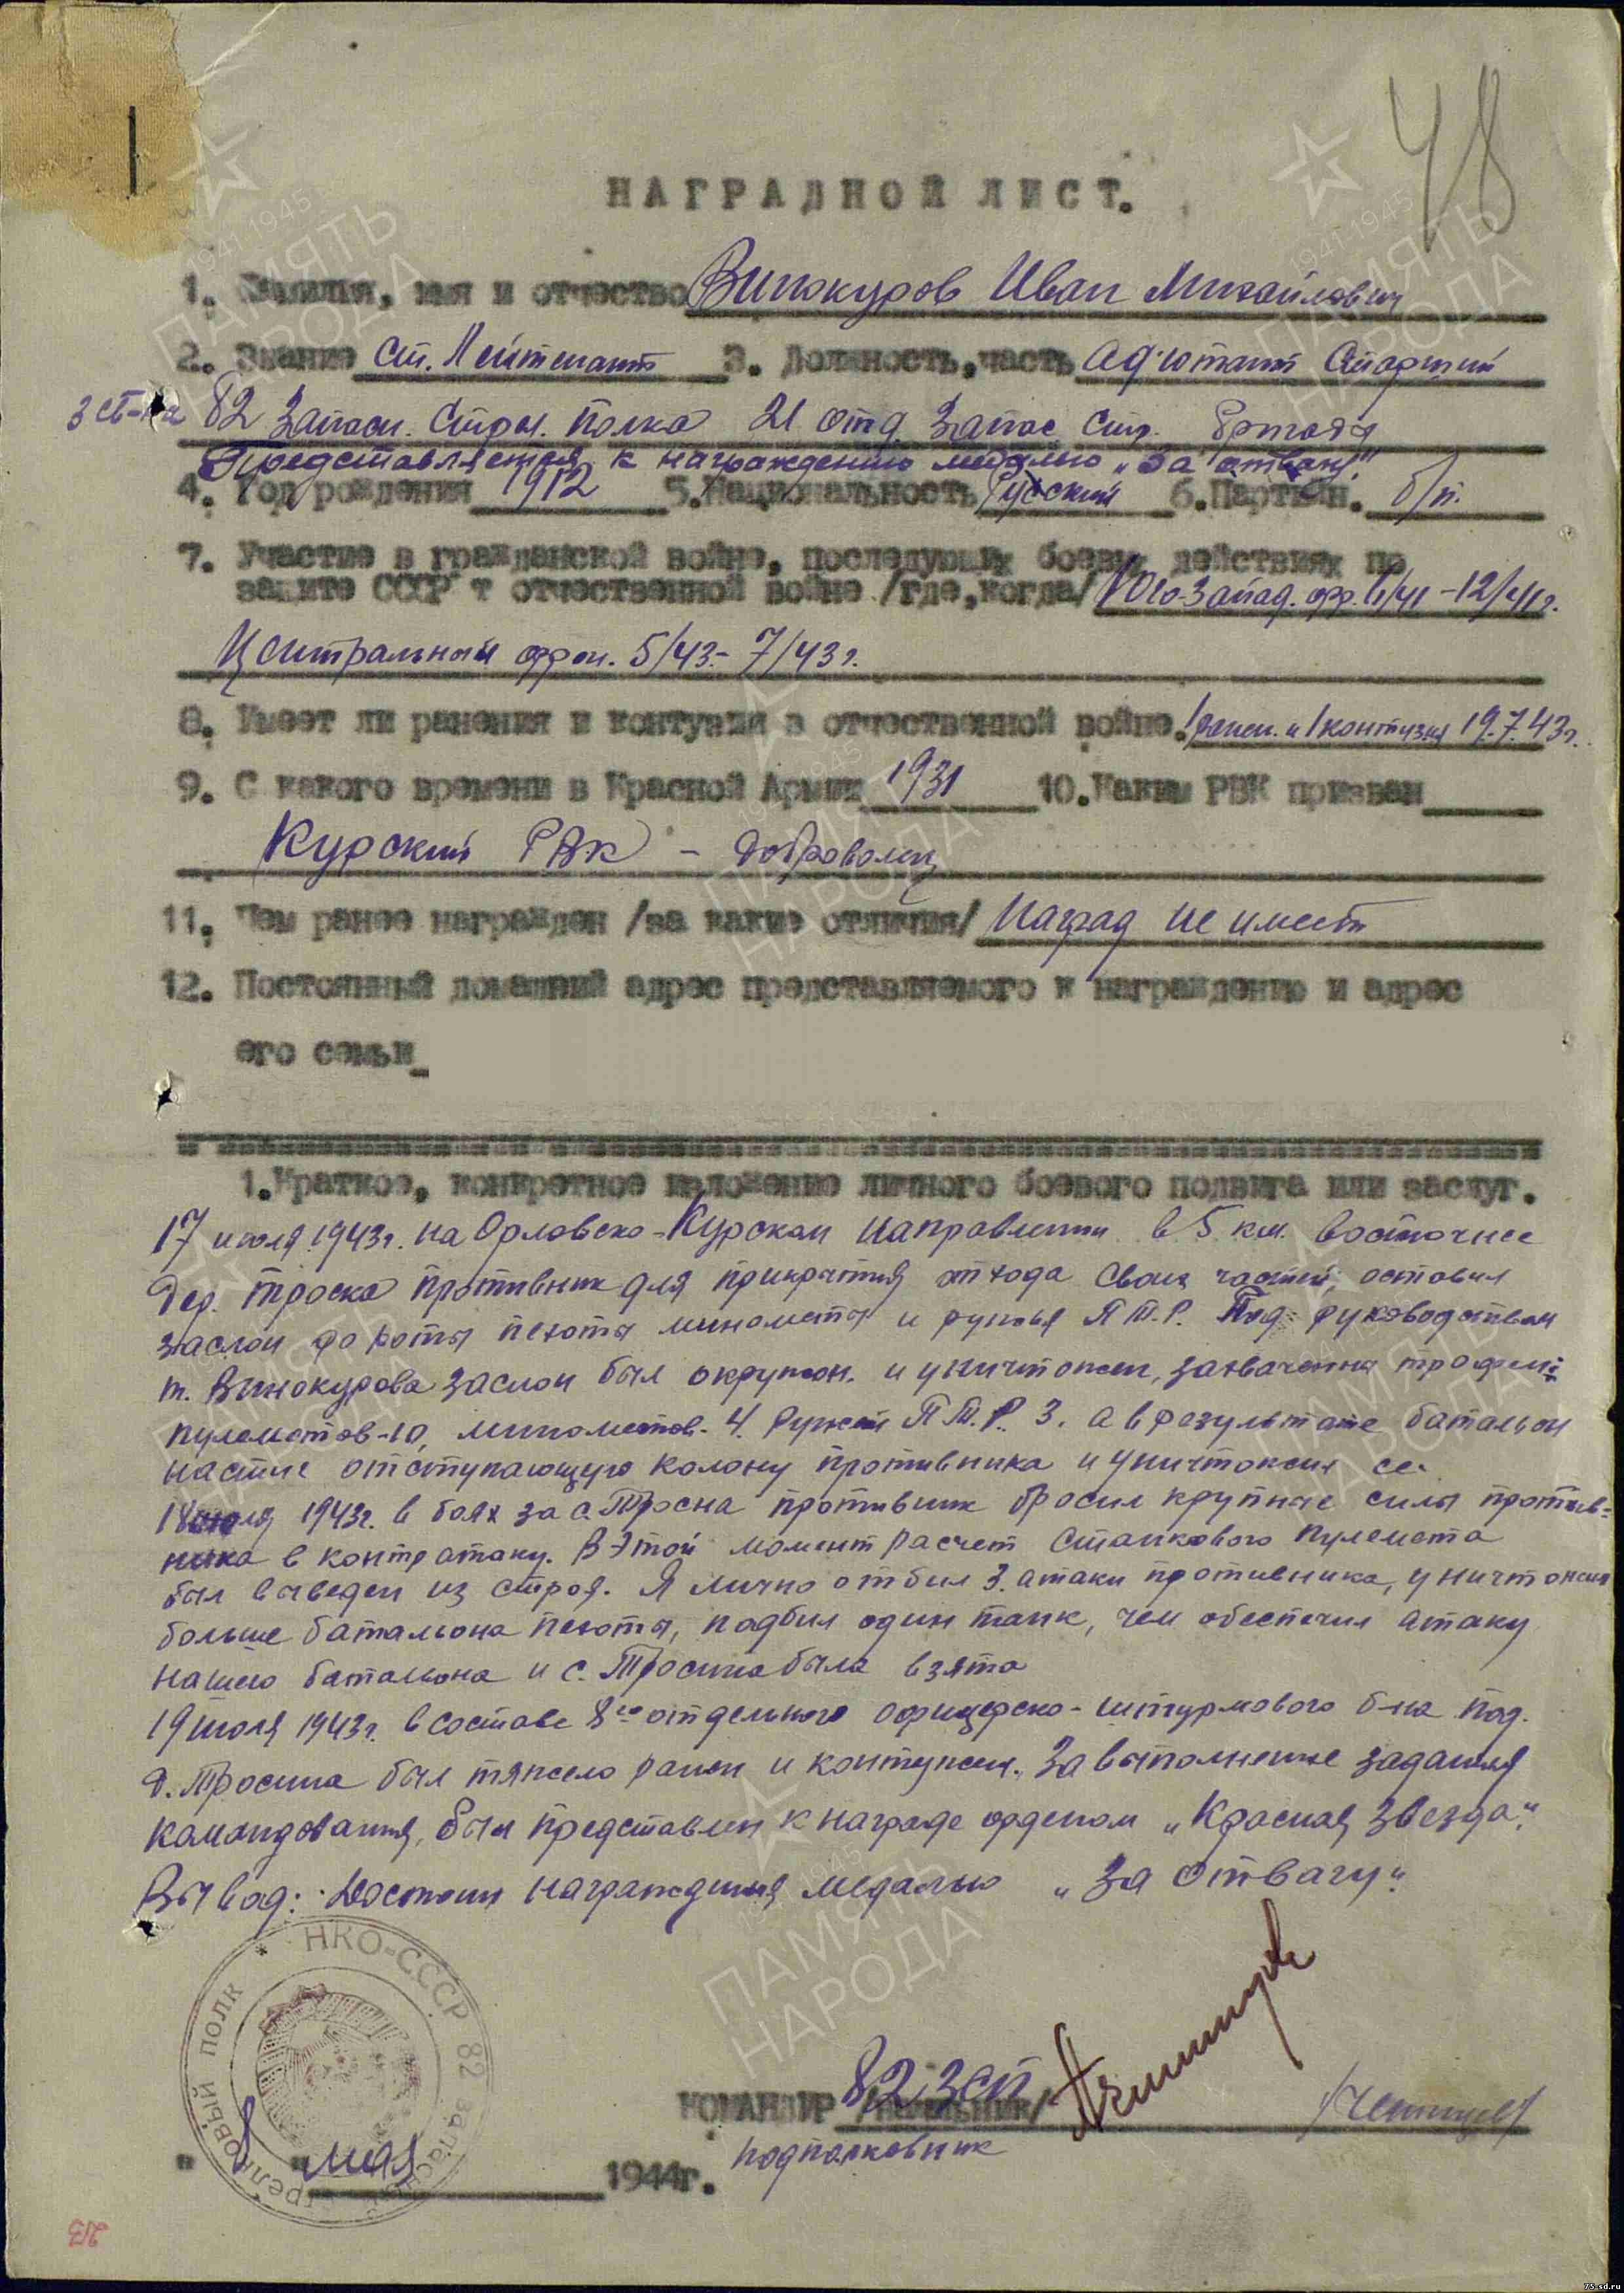 48
НАГРАДНОЙ ЛИСТ.
1. Фамилия, имя и отчество Винокуров Иван Михайлович
2. Звание Ст. Лейтенант 3. Должность, часть Адъютант Старший
3 сб-на 82 Запасн. Стрел. Полка 21 отд. Запас Стр. бригады
Представляется к награждению медалью „За отвагу“
4. Год рождения 1912 5. Национальность Русский 6. Партийн. б/п.
7. Участие в гражданской войне, последующих боевых действиях по
защите СССР т отчественной войне /где, когда/ Юго-Запад. фр. 6/41 - 12/41г.
Центральный фрон. 5/43 - 7/43г.
8. Имеет ли ранения и контузии в отчественной войне. 1 ранен. и 1 контузия 19.7.43г.
9. С какого времени в Красной Армии 1931 10. Каким РВК призван
Курский РВК - доброволец
11. Чем ранее награжден /за какие отличия/ Наград не имеет
12. Постоянный домашний адрес представляемого к награждению и адрес
его семьи
1. Краткое, конкретное изложение личного боевого подвига или заслуг.
17 июля 1943г. на Орловско-Курском направлении в 5 км. восточнее
дер. Троска противник для прикрытия отхода своих частей, оставил
заслон до роты пехоты минометы и ружья П.Т.Р. Под руководством
т. Винокурова заслон был окружен. и уничтожен, захвачены трофеи:
пулеметов-10, минометов-4. Ружей П.Т.Р. 3. а в результате батальон
настиг отступающую колону противника и уничтожил ее.
18 июля 1943г. в боях за с. Тросна противник бросил крупные силы против-
ника в контратаку. В этой момент расчет станкового пулемета
был выведен из строя. Я лично отбил 3 атаки противника, уничтожил
больше батальона пехоты, подбил один танк, чем обеспечил атаку
нашего батальона и с. Тросна была взята
19 июля 1943г. в составе 8го отдельного офицерско-штурмового б-на под.
д. Тросна был тяжело ранен и контужен. За выполнение задания
командования, был представлен к награде орденом „Красная Звезда“.
Вывод: Достоин награждения медалью „За отвагу“.
НКО-СССР 82 запасной стрелковый полк
КОМАНДИР 82 зсп /НАЧАЛЬНИК/
подполковник
" 8 " мая 1944г.
ПАМЯТЬ НАРОДА
1941 1945
75-sd.ru